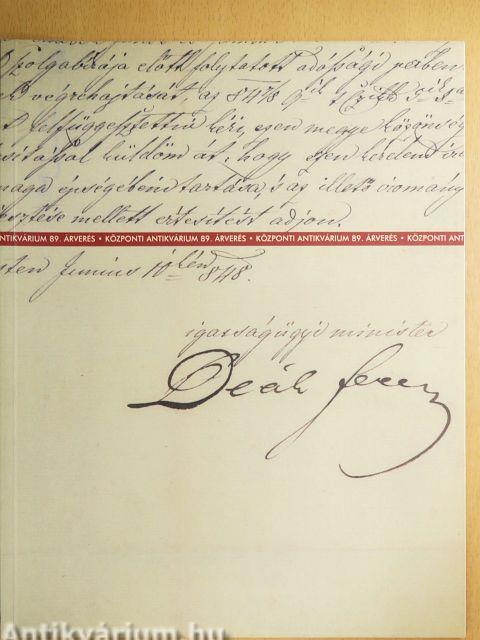 szolgabirája előtt folytatott adóssági perben
végrehajtását, az 8478
t felfüggesztetni kéri, ezen megye közönség
sitással küldöm át, hogy ezen kérelmet
maga épségében tartása, 's az illető iromány
esztése mellett értesitést adjon.
NTIKVÁRIUM 89. ÁRVERÉS • KÖZPONTI ANTIKVÁRIUM 89. ÁRVERÉS • KÖZPONTI ANTIKVÁRIUM 89. ÁRVERÉS • KÖZPONTI ANT
sten Junius 10kén 848.
igazságügyi minister
Deák Ferencz
Antikvárium.hu